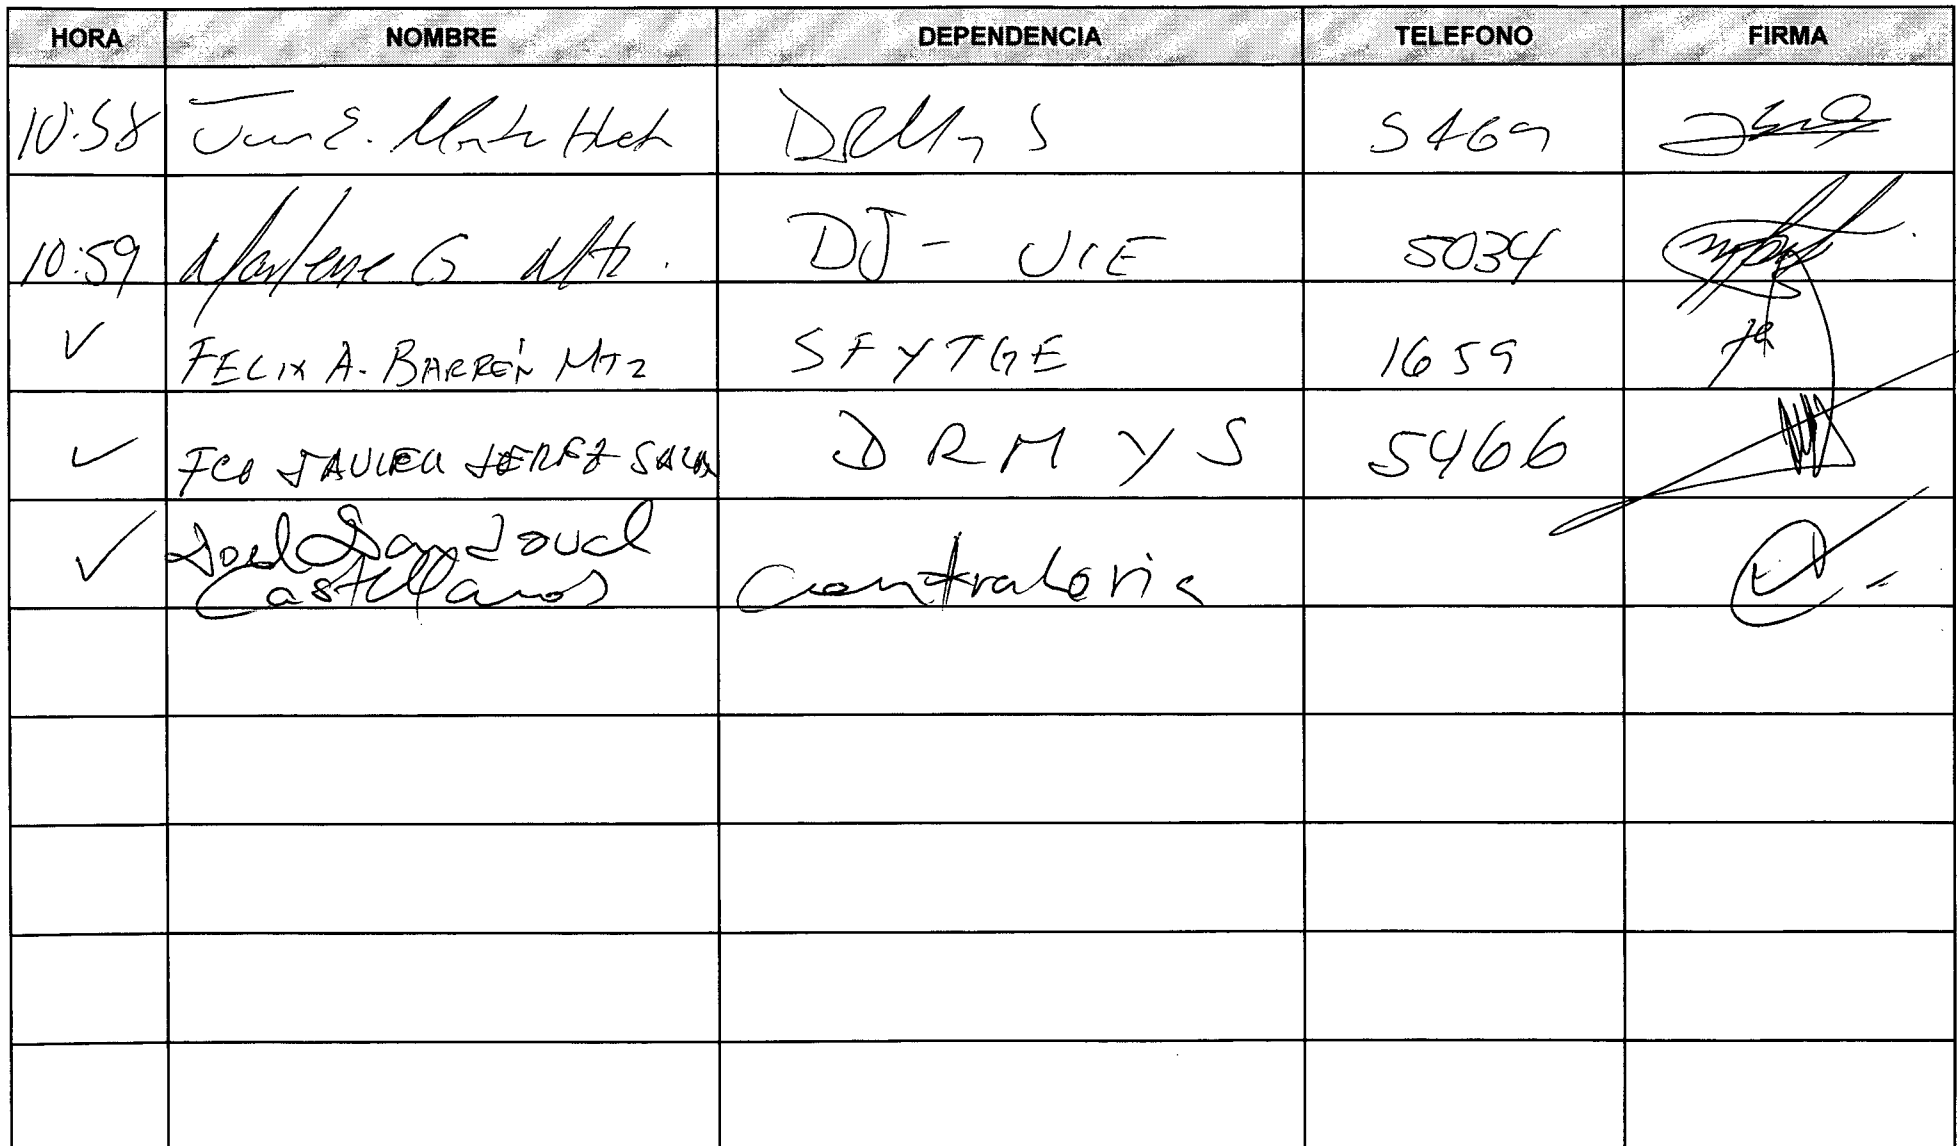 HORA NOMBRE DEPENDENCIA TELEFONO FIRMA
10:58 E. DRMyS 5469
10:59 Marlene G Mtz. DJ - UIE 5034
✓ FELIX A. BARRÉN MTZ SFYTGE 1659
✓ FCO JAVIER JEREZ DRM Y S 5466
✓ Joel Sandoval
Castellanos Contraloria